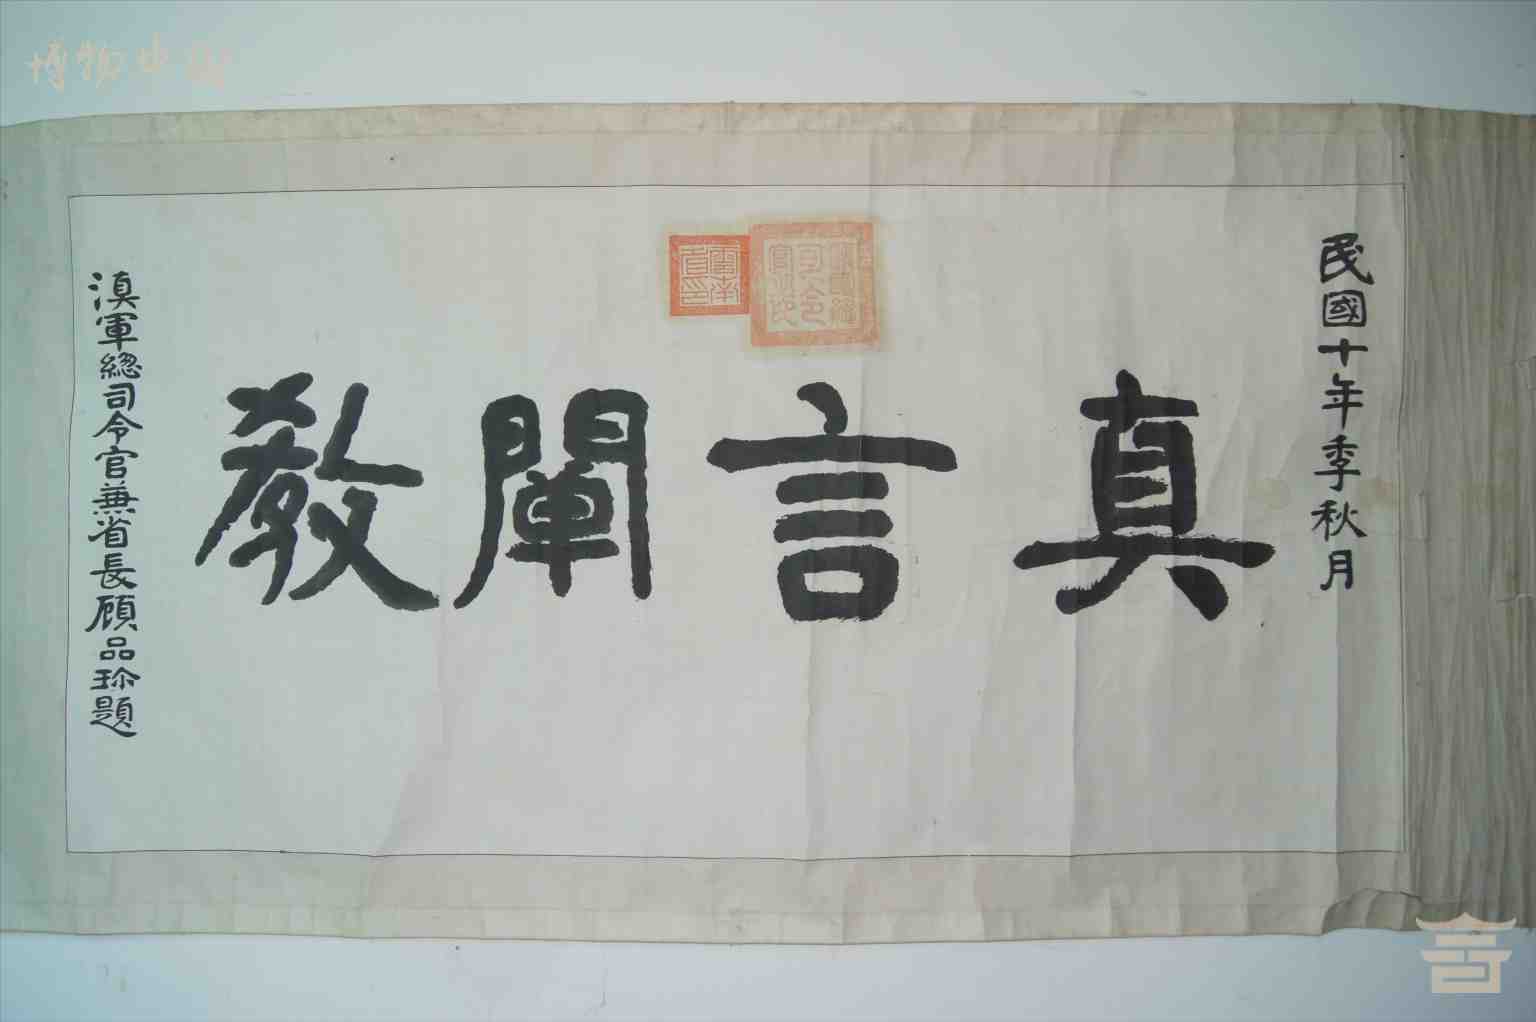 民國十年季秋月
真言闡教
滇軍總司令官兼省長顧品珍題
雲南省印
博物中國